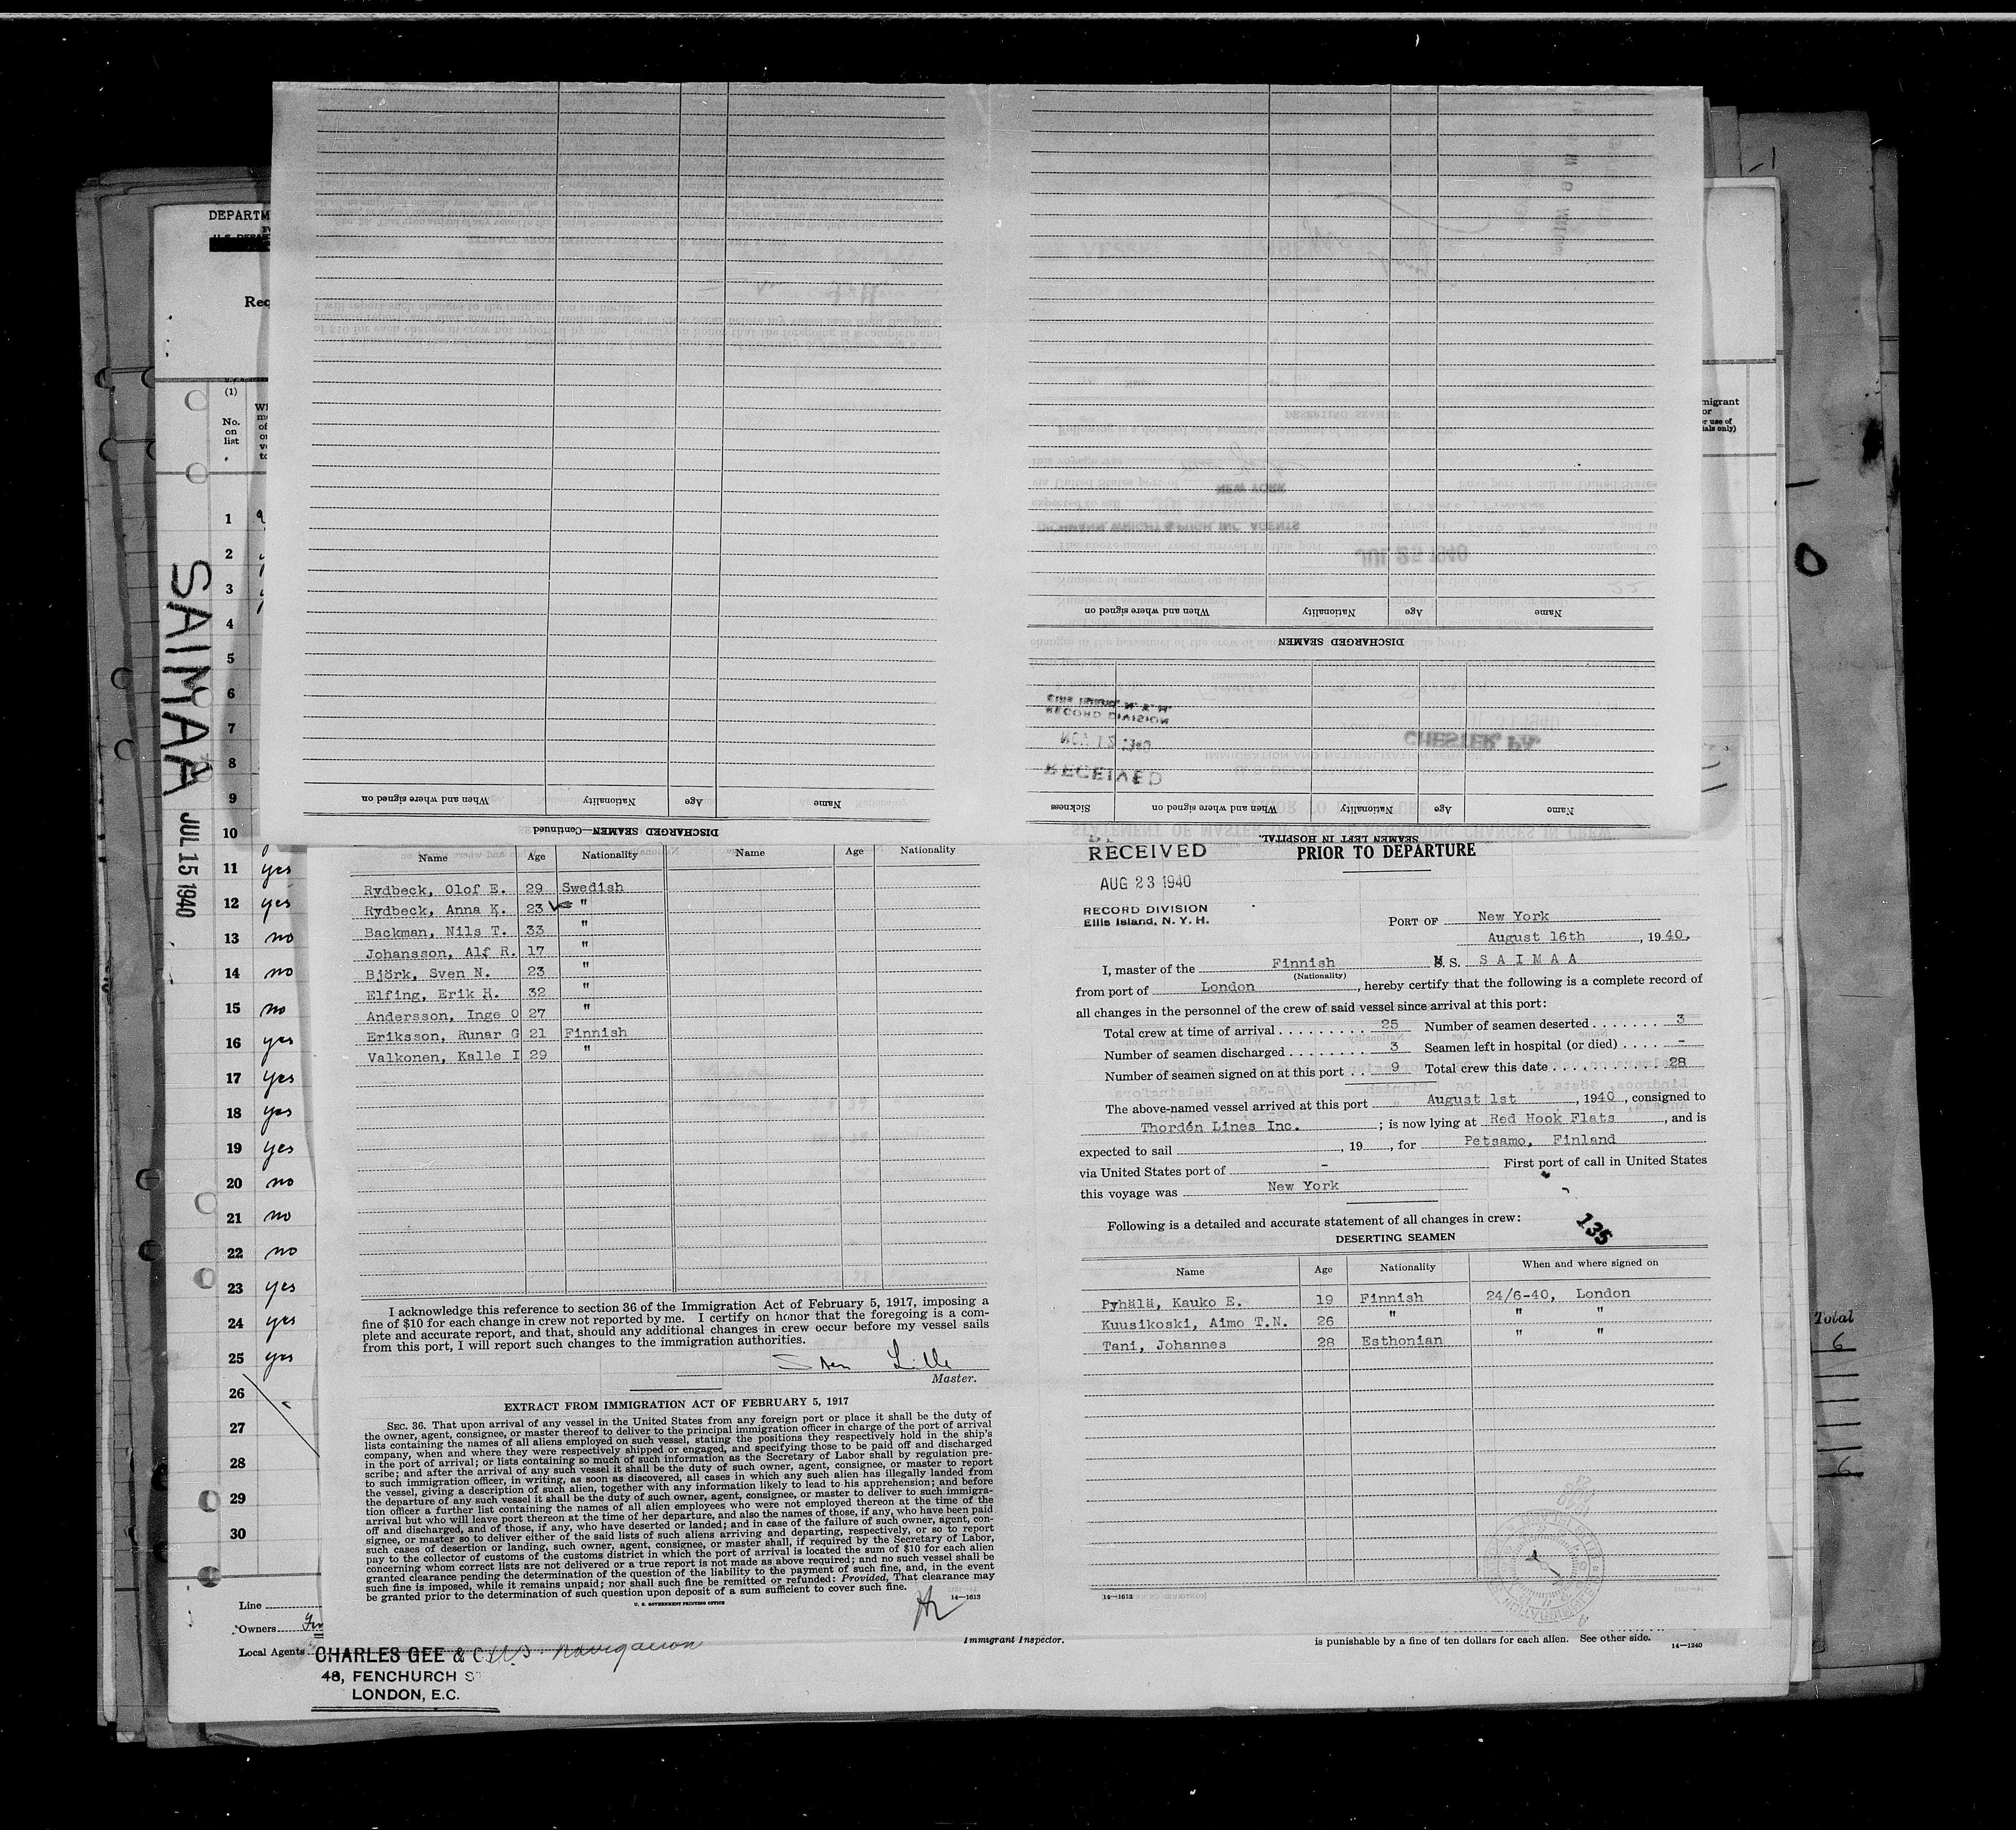 DEPARTM
Req
(1)
No.
on
list
SAIMAA JUL 15 1940
1
2
3
4
5
6
7
8
9
10
11 yes
12 yes
13 no
14 no
15 no
16 yes
17 yes
18 yes
19 yes
20 no
21 no
22 no
23 yes
24 yes
25 yes
26
27
28
29
30
Line
Owners
Local Agents
CHARLES GEE & C
Navigation
48, FENCHURCH S
LONDON, E.C.
DISCHARGED SEAMEN—Continued
Name Age Nationality When and where signed on
DISCHARGED SEAMEN
Name Age Nationality When and where signed on
SEAMEN LEFT IN HOSPITAL
Name Age Nationality When and where signed on Sickness
RECEIVED
NOV 12 1940
RECORD DIVISION
Ellis Island, N. Y. H.
CHESTER, PA.
JUL 25 1940
NEW YORK
Name Age Nationality Name Age Nationality
Rydbeck, Olof E. 29 Swedish
Rydbeck, Anna K. 23 "
Backman, Nils T. 33 "
Johansson, Alf R. 17 "
Björk, Sven N. 23 "
Elfing, Erik H. 32 "
Andersson, Inge O 27 "
Eriksson, Runar G 21 Finnish
Valkonen, Kalle I 29 "
I acknowledge this reference to section 36 of the Immigration Act of February 5, 1917, imposing a
fine of $10 for each change in crew not reported by me. I certify on honor that the foregoing is a com-
plete and accurate report, and that, should any additional changes in crew occur before my vessel sails
from this port, I will report such changes to the immigration authorities.
Sten Lille
Master.
EXTRACT FROM IMMIGRATION ACT OF FEBRUARY 5, 1917
SEC. 36. That upon arrival of any vessel in the United States from any foreign port or place it shall be the duty of
the owner, agent, consignee, or master thereof to deliver to the principal immigration officer in charge of the port of arrival
lists containing the names of all aliens employed on such vessel, stating the positions they respectively hold in the ship's
company, when and where they were respectively shipped or engaged, and specifying those to be paid off and discharged
in the port of arrival; or lists containing so much of such information as the Secretary of Labor shall by regulation pre-
scribe; and after the arrival of any such vessel it shall be the duty of such owner, agent, consignee, or master to report
to such immigration officer, in writing, as soon as discovered, all cases in which any such alien has illegally landed from
the vessel, giving a description of such alien, together with any information likely to lead to his apprehension; and before
the departure of any such vessel it shall be the duty of such owner, agent, consignee, or master to deliver to such immigra-
tion officer a further list containing the names of all alien employees who were not employed thereon at the time of the
arrival but who will leave port thereon at the time of her departure, and also the names of those, if any, who have been paid
off and discharged, and of those, if any, who have deserted or landed; and in case of the failure of such owner, agent, con-
signee, or master so to deliver either of the said lists of such aliens arriving and departing, respectively, or so to report
such cases of desertion or landing, such owner, agent, consignee, or master shall, if required by the Secretary of Labor,
pay to the collector of customs of the customs district in which the port of arrival is located the sum of $10 for each alien
concerning whom correct lists are not delivered or a true report is not made as above required; and no such vessel shall be
granted clearance pending the determination of the question of the liability to the payment of such fine, and, in the event
such fine is imposed, while it remains unpaid; nor shall such fine be remitted or refunded: Provided, That clearance may
be granted prior to the determination of such question upon deposit of a sum sufficient to cover such fine.
U. S. GOVERNMENT PRINTING OFFICE 14—1613
RECEIVED
AUG 23 1940
RECORD DIVISION
Ellis Island, N. Y. H.
PRIOR TO DEPARTURE
PORT OF New York
August 16th, 1940.
I, master of the Finnish M.S. S A I M A A
(Nationality)
from port of London, hereby certify that the following is a complete record of
all changes in the personnel of the crew of said vessel since arrival at this port:
Total crew at time of arrival . . . . . . . . . 25 Number of seamen deserted . . . . . . . 3
Number of seamen discharged . . . . . . . . 3 Seamen left in hospital (or died) . . . . -
Number of seamen signed on at this port . . 9 Total crew this date . . . . . . . . . . 28
The above-named vessel arrived at this port August 1st, 1940, consigned to
Thordén Lines Inc. ; is now lying at Red Hook Flats, and is
expected to sail , 19 , for Petsamo, Finland
via United States port of - First port of call in United States
this voyage was New York
Following is a detailed and accurate statement of all changes in crew:
135
DESERTING SEAMEN
Name Age Nationality When and where signed on
Pyhälä, Kauko E. 19 Finnish 24/6-40, London
Kuusikoski, Aimo T.N. 26 " " "
Tani, Johannes 28 Esthonian " "
14—1613
Immigrant Inspector.
is punishable by a fine of ten dollars for each alien. See other side.
14—1240
Total
6
6